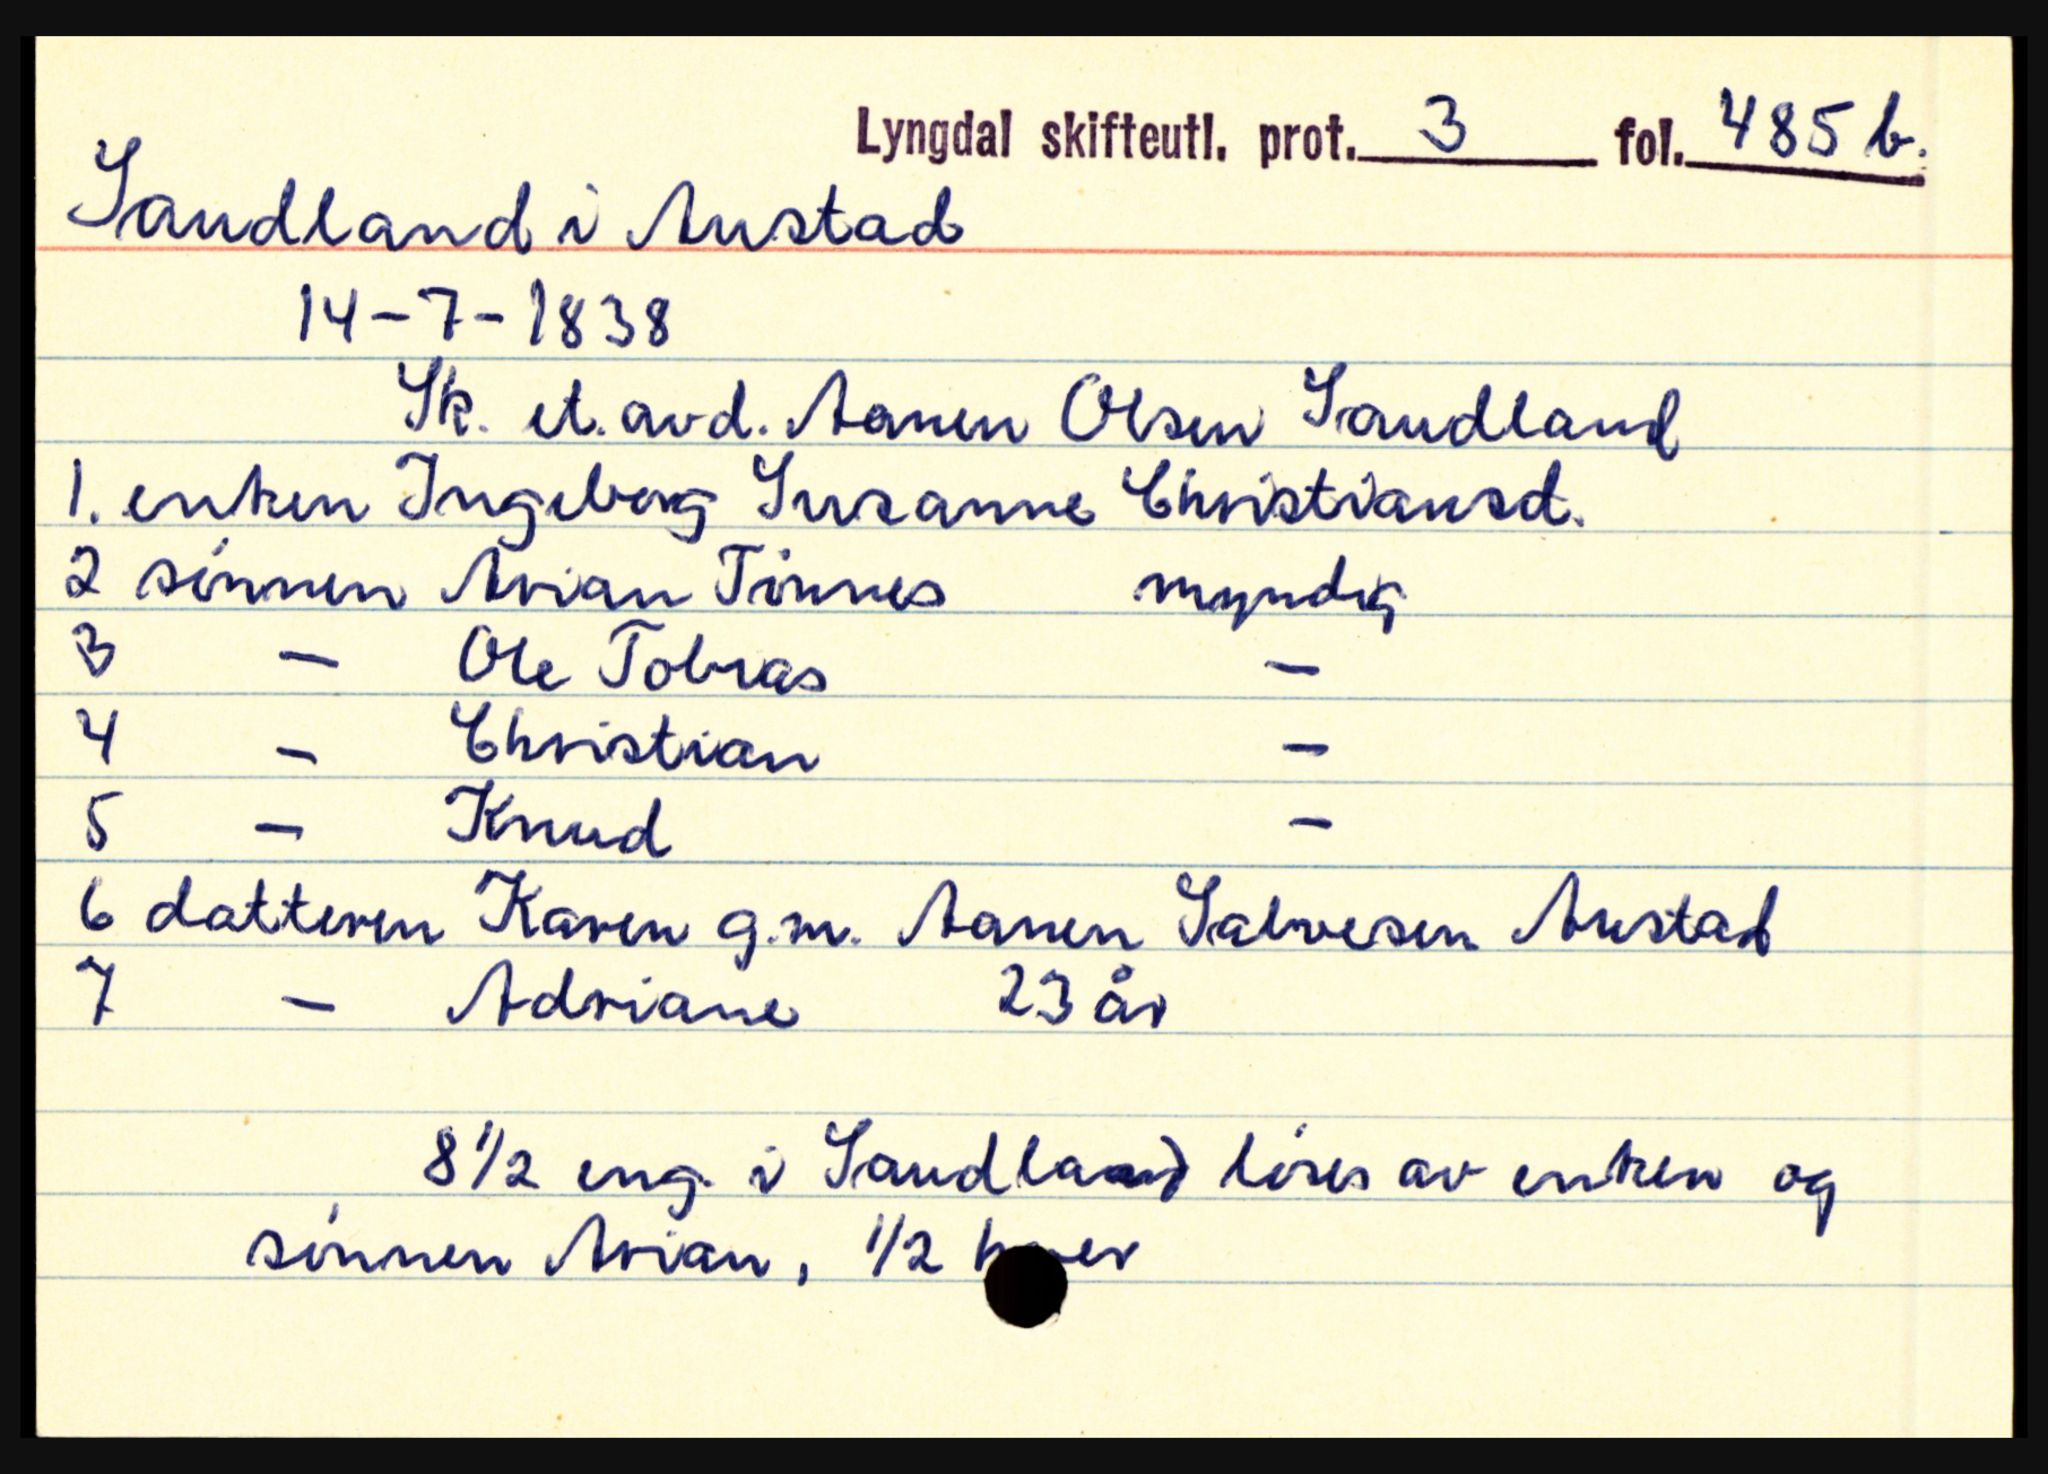 Lyngdal skifteutl. prot. 3 fol. 485 b.
Sandland i Austad
14-7-1838
Sk. et. avd. Aanen Olsen Sandland
1. enken Ingeborg Susanne Christiansd.
2 sónnen Arian Tónnes myndig
3 - Ole Tobias -
4 - Christian -
5 - Knud -
6 datteren Karen g.m. Aanen Salvesen Austad
7 - Adriane 23 år
8 1/2 eng. i Sandland lóses av enken og
sónnen Arian, 1/2 hver